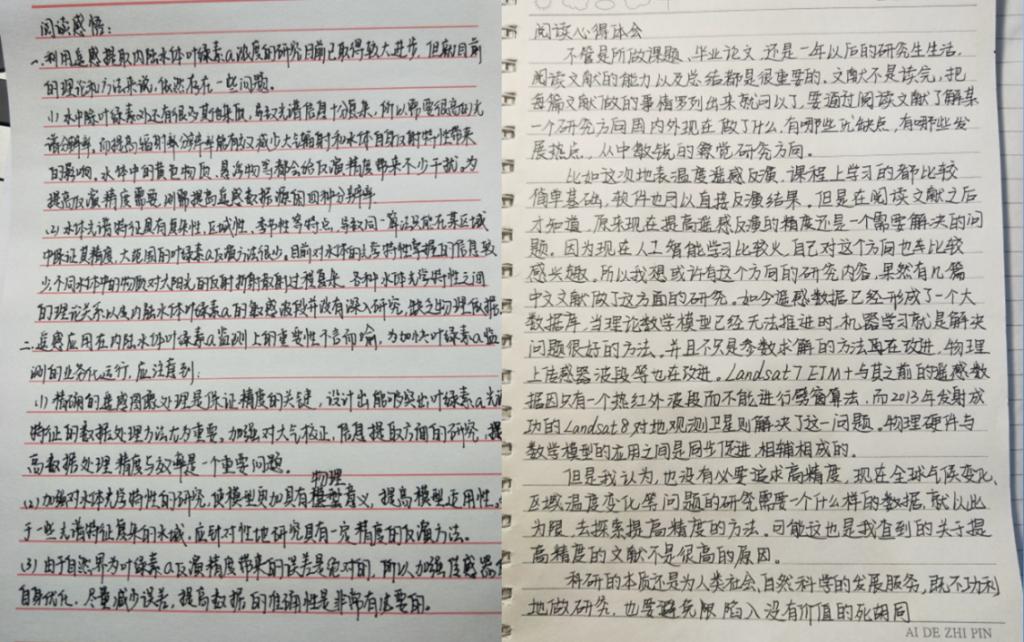 阅读感悟:
一、利用遥感提取内陆水体叶绿素a浓度的研究目前已取得较大进步,但就目前
的理论和方法来说,依然存在一些问题。
(1) 水中除叶绿素以还有很多其他杂质,导致光谱信息十分复杂,所以需要很高的光
谱分辨率,即提高辐射率分辨率能有效减少大气辐射和水体自身反射特性带来
的影响。水体中的黄色物质、悬浮物等都会给反演精度带来不少干扰,为
提高反演精度需要, 则需提高遥感数据源的四种分辨率
(2) 水体光谱特征具有复杂性,区域性,季节性等特点,导致同一算法只能在某区域
中保证其精度,大范围的叶绿素a反演方法很少。目前对水体的光学特性掌握的信息较
少,不同水体中的物质对太阳光的反射折射散射过程复杂,各种水体光学特性之间
的理论关系以及内陆水体叶绿素a的敏感波段并没有深入研究,缺乏物理依据
二、遥感应用在内陆水体叶绿素a监测上的重要性不言而喻,为加快叶绿素a监
测的业务化运行,应注意到:
(1) 精确的遥感图像处理是保证精度的关键,设计出能够突出叶绿素a光谱
特征的数据处理方法尤为重要。加强对大气校正,信息提取方面的研究,提
高数据处理精度与效率是一个重要问题。
物理
(2) 加强对水体光学特性的研究,使模型更加具有模型意义,提高模型适用性,
于一些光谱特征复杂的水域,应针对性地研究具有一定精度的反演方法。
(3) 由于自然界为叶绿素a反演精度带来的误差是绝对的,所以加强传感器
自身优化,尽量减少误差,提高数据的准确性是非常有必要的。
阅读心得体会
不管是所做课题、毕业论文,还是一年以后的研究生生活,
阅读文献的能力以及总结都是很重要的。文献不是读完,把
每篇文献做的事情罗列出来就可以了,要通过阅读文献了解某
一个研究方向国内外现在做了什么,有哪些优缺点,有哪些发
展热点,从中敏锐的察觉研究方向。
比如这次地表温度遥感反演,课程上学习的都比较
简单基础,软件也可以直接反演结果。但是在阅读文献之后
才知道,原来现在提高遥感反演的精度还是一个需要解决的问
题。因为现在人工智能学习比较火,自己对这个方向也车比较
感兴趣。所以我想或许有这个方向的研究内容,果然有几篇
中文文献做了这方面的研究。如今遥感数据已经形成了一个大
数据库,当理论数学模型已经无法推进时,机器学习就是解决
问题很好的方法。并且不只是参数求解的方法在改进,物理
上传感器波段等也在改进。Landsat7 ETM+与其之前的遥感数
据因只有一个热红外波段而不能进行劈窗算法,而2013年发射成
功的Landsat8对地观测卫星则解决了这一问题。物理硬件与
数学模型的应用之间是同步促进,相辅相成的。
但是我认为,也没有必要追求高精度,现在全球气候变化,
区域温度变化等问题的研究需要一个什么样的数据,就以此
为限,去探索提高精度的方法。可能这也是我查到的关于提
高精度的文献不是很高的原因。
科研的本质还是为人类社会,自然科学的发展服务,既不功利
地做研究,也要避免限陷入没有价值的死胡同
AI DE ZHI PIN